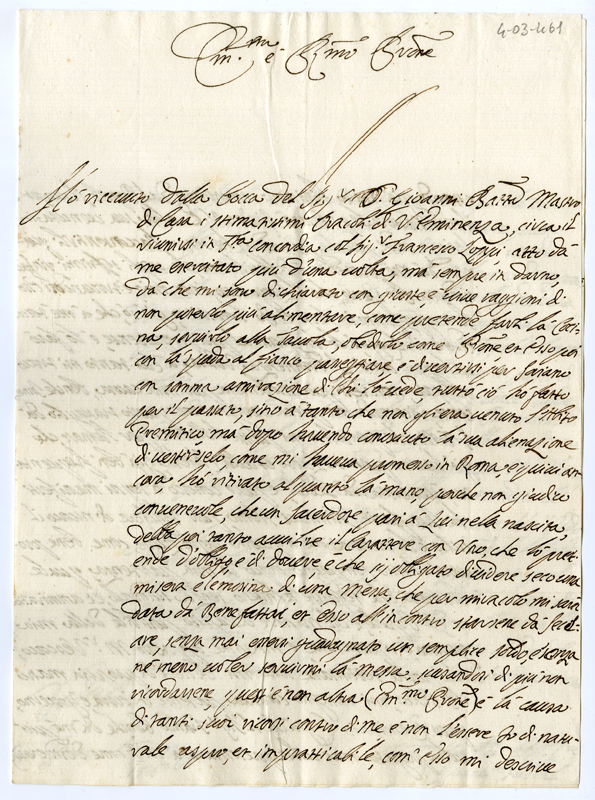 4-03-461
Em.mo e R.mo P.rone
Hò ricevuto dalla bocca del Sig.r D. Giovanni Batt.a Mastro
di Casa i stimatissimi oracoli di V. Eminenza, circa il
riunirsi in concordia col Sig.r Francesco atto dà
me esercitato più d'una volta, mà sempre in darno,
dà che mi sono dichiarato con giuste, è vive raggioni di
non poterlo più alimentare, come pretende, farli la Coci-
na, servirlo alla Tavola, obedirlo come P.rone et esso poi
con la spada al fianco passeggiare è divertirsi per
con somma amirazione di chi lo vede, tutto ciò hò fatto
per il passato, sino à tanto che non gliera venuto l'habito
Eremitico, mà dopo havendo conosciuto la sua alienazione
di vestirselo come mi haveva promesso in Roma, e quivi an-
cora, hò ritirato alquanto la mano, perche non giudico
convenevole, che un sacerdote pari a lui nella nascita,
debba poi tanto avvilire il Carattere con Uno, che lo pret-
ende d'obligo e il dovere è che sij obligato dividere seco una
misera elemosina di una messa, che per miracolo mi sarà
data dà Benefattori, et esso all'incontro starsene dà secol-
are, senza mai essersi guadagnato un semplice soldo, e senza
nè meno voler servirmi la messa, curandosi di più non
ricordarsene, questa è non altra (Em.mo P.rone) è la causa
di tanti suoi ricorsi contro di me è non l'essere Io di natu-
rale aspro, et impratticabile, com'esso mi descrive